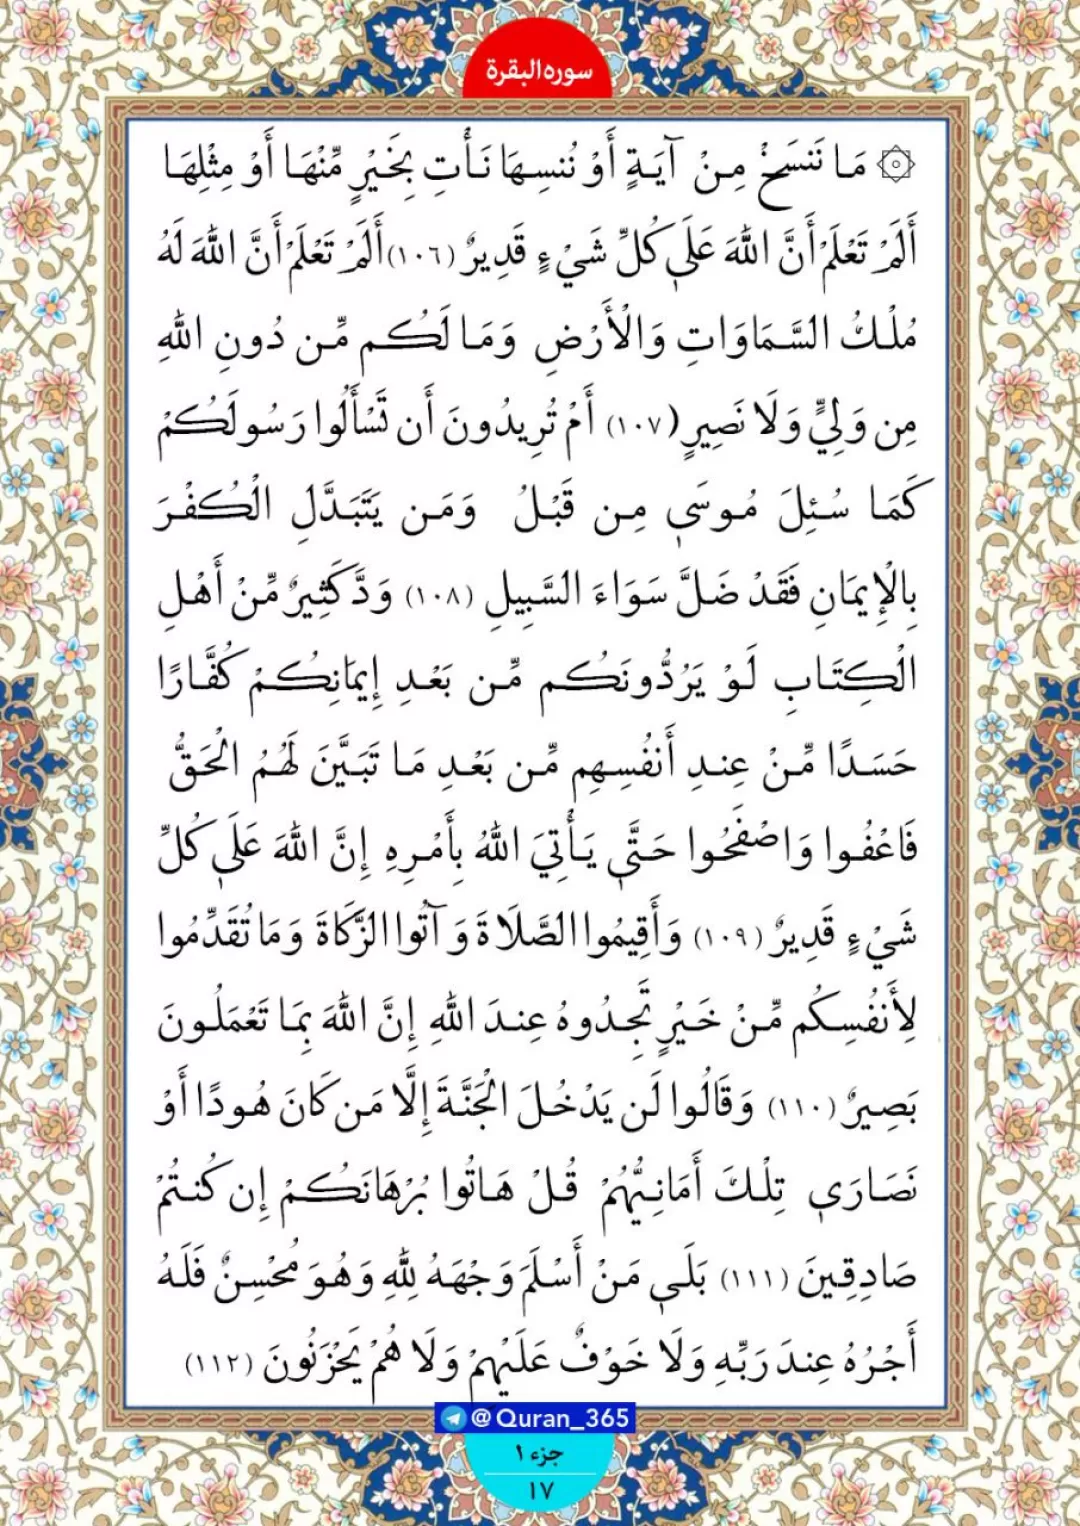 سوره البقرة
۞ مَا نَنسَخْ مِنْ آيَةٍ أَوْ نُنسِهَا نَأْتِ بِخَيْرٍ مِّنْهَا أَوْ مِثْلِهَا
أَلَمْ تَعْلَمْ أَنَّ اللَّهَ عَلَىٰ كُلِّ شَيْءٍ قَدِيرٌ (۱۰۶) أَلَمْ تَعْلَمْ أَنَّ اللَّهَ لَهُ
مُلْكُ السَّمَاوَاتِ وَالْأَرْضِ وَمَا لَكُم مِّن دُونِ اللَّهِ
مِن وَلِيٍّ وَلَا نَصِيرٍ (۱۰۷) أَمْ تُرِيدُونَ أَن تَسْأَلُوا رَسُولَكُمْ
كَمَا سُئِلَ مُوسَىٰ مِن قَبْلُ وَمَن يَتَبَدَّلِ الْكُفْرَ
بِالْإِيمَانِ فَقَدْ ضَلَّ سَوَاءَ السَّبِيلِ (۱۰۸) وَدَّ كَثِيرٌ مِّنْ أَهْلِ
الْكِتَابِ لَوْ يَرُدُّونَكُم مِّن بَعْدِ إِيمَانِكُمْ كُفَّارًا
حَسَدًا مِّنْ عِندِ أَنفُسِهِم مِّن بَعْدِ مَا تَبَيَّنَ لَهُمُ الْحَقُّ
فَاعْفُوا وَاصْفَحُوا حَتَّىٰ يَأْتِيَ اللَّهُ بِأَمْرِهِ إِنَّ اللَّهَ عَلَىٰ كُلِّ
شَيْءٍ قَدِيرٌ (۱۰۹) وَأَقِيمُوا الصَّلَاةَ وَآتُوا الزَّكَاةَ وَمَا تُقَدِّمُوا
لِأَنفُسِكُم مِّنْ خَيْرٍ تَجِدُوهُ عِندَ اللَّهِ إِنَّ اللَّهَ بِمَا تَعْمَلُونَ
بَصِيرٌ (۱۱۰) وَقَالُوا لَن يَدْخُلَ الْجَنَّةَ إِلَّا مَن كَانَ هُودًا أَوْ
نَصَارَىٰ تِلْكَ أَمَانِيُّهُمْ قُلْ هَاتُوا بُرْهَانَكُمْ إِن كُنتُمْ
صَادِقِينَ (۱۱۱) بَلَىٰ مَنْ أَسْلَمَ وَجْهَهُ لِلَّهِ وَهُوَ مُحْسِنٌ فَلَهُ
أَجْرُهُ عِندَ رَبِّهِ وَلَا خَوْفٌ عَلَيْهِمْ وَلَا هُمْ يَحْزَنُونَ (۱۱۲)
@Quran_365
جزء ۱
۱۷